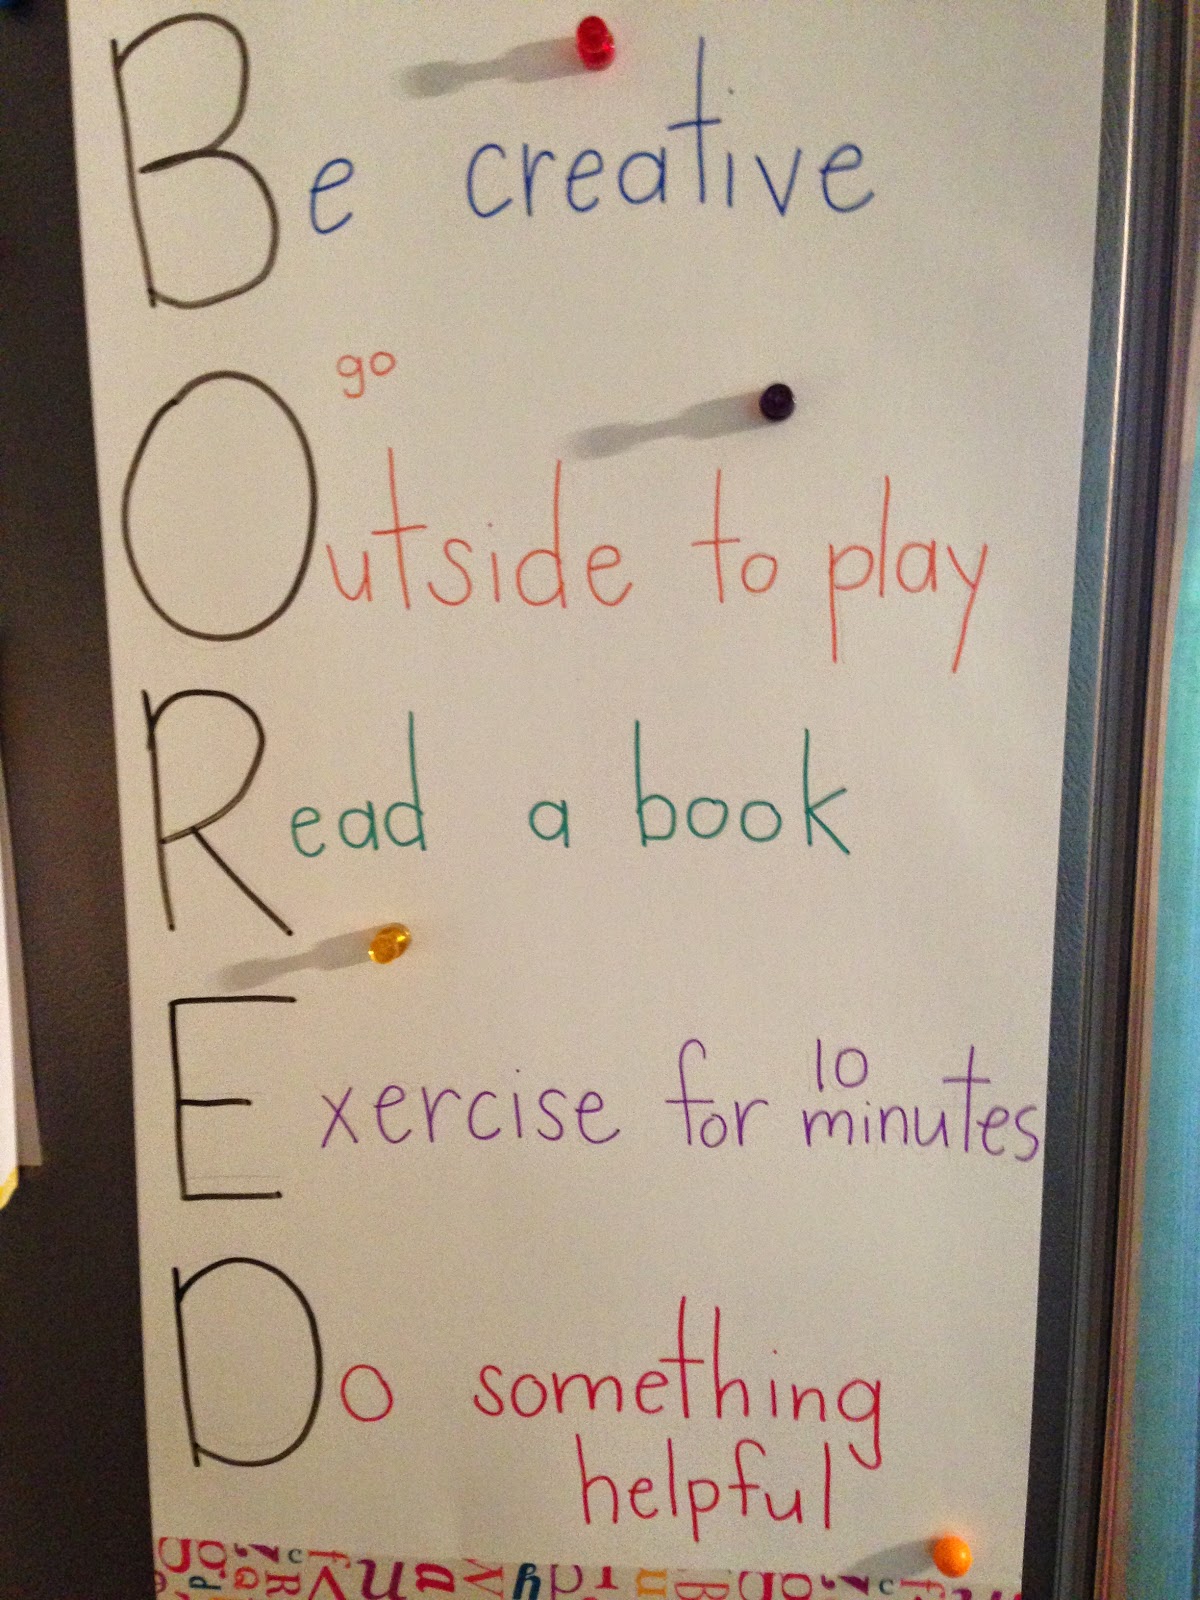 Be creative
go
Outside to play
Read a book
Exercise for 10 minutes
Do something
helpful